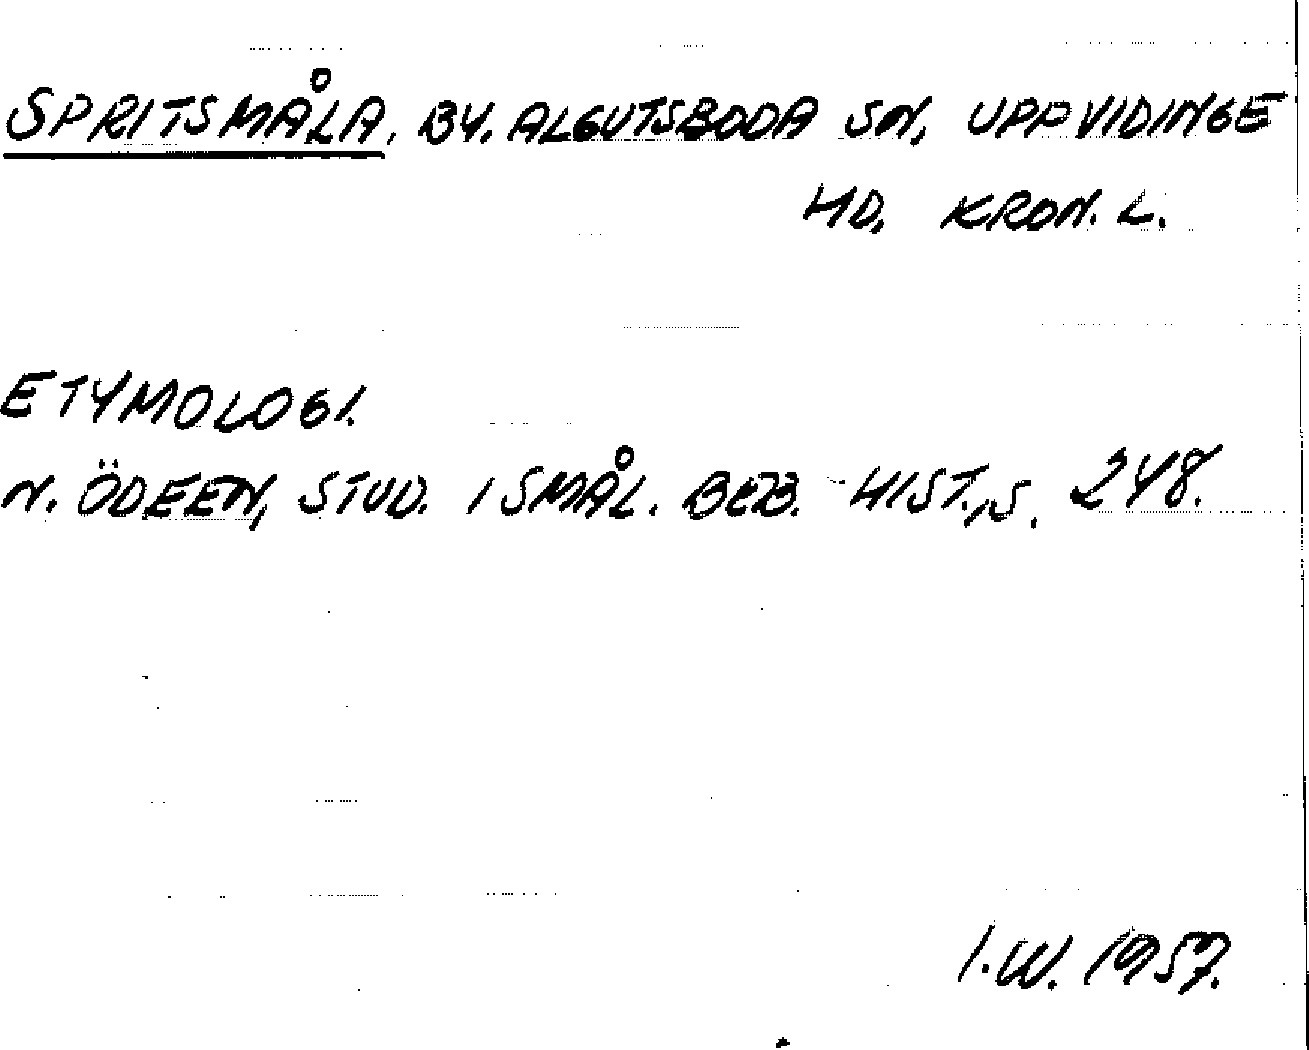 SPRITSMÅLA. BY. ALGUTSBODA SN, UPPVIDINGE
HD. KRON. L.
ETYMOLOGI.
N. ÖDEEN, STUD. I SMÅL. BEB. HIST., S. 248.
I.W. 1957.